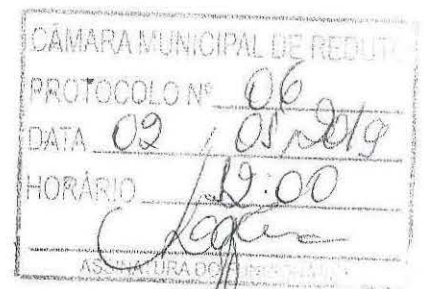 CÂMARA MUNICIPAL DE REDUTO
PROTOCOLO Nº 06
DATA 02 / 01 / 2019
HORÁRIO :00
ASSINATURA DO